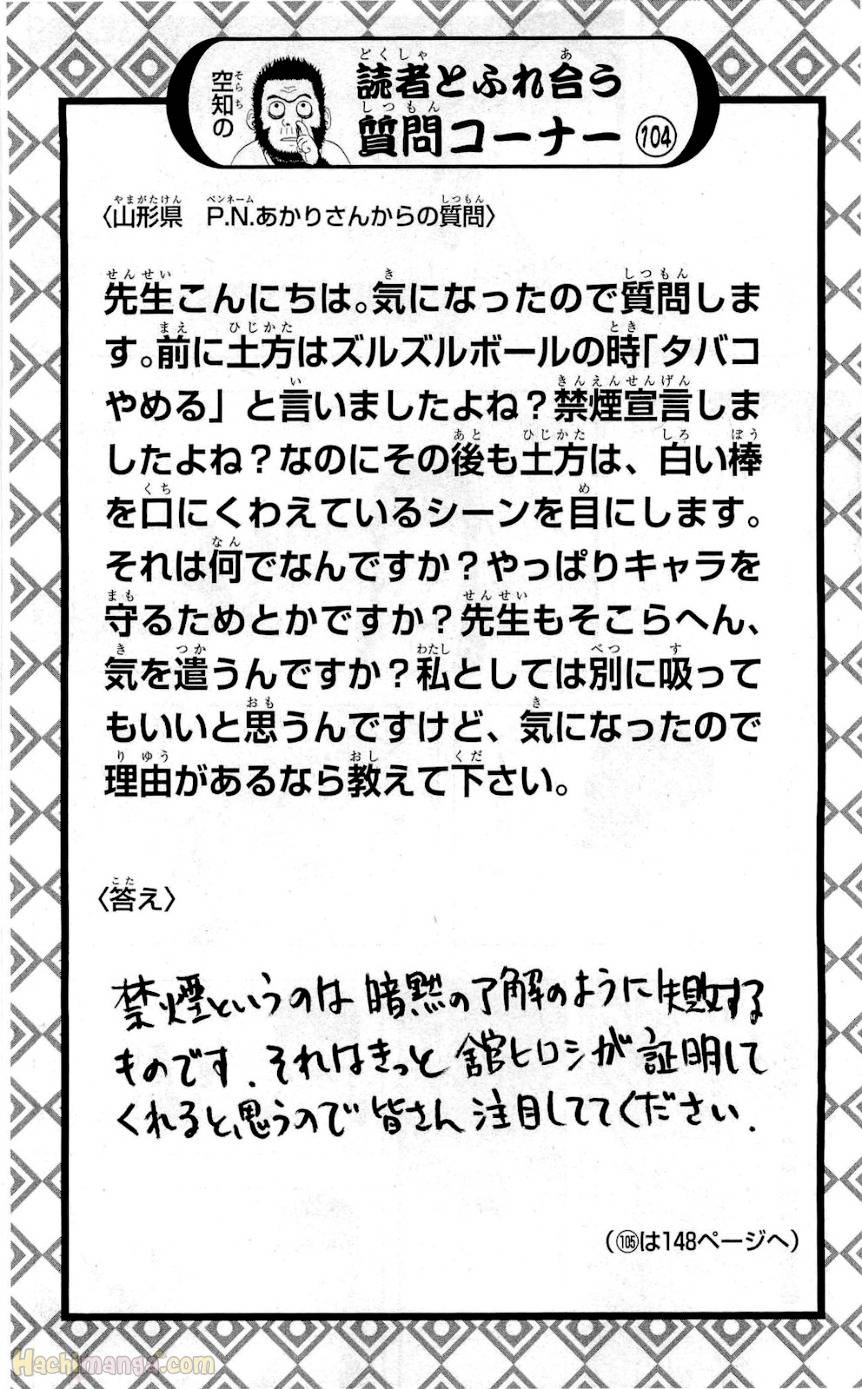 空知の
読者とふれ合う
質問コーナー 104
〈山形県 P.N.あかりさんからの質問〉
先生こんにちは。気になったので質問しま
す。前に土方はズルズルボールの時「タバコ
やめる」と言いましたよね？禁煙宣言しま
したよね？なのにその後も土方は、白い棒
を口にくわえているシーンを目にします。
それは何でなんですか？やっぱりキャラを
守るためとかですか？先生もそこらへん、
気を遣うんですか？私としては別に吸って
もいいと思うんですけど、気になったので
理由があるなら教えて下さい。
〈答え〉
禁煙というのは暗黙の了解のように失敗する
ものです. それはきっと舘ヒロシが証明して
くれると思うので皆さん注目しててください.
（105は148ページへ）
Hachimanga.com